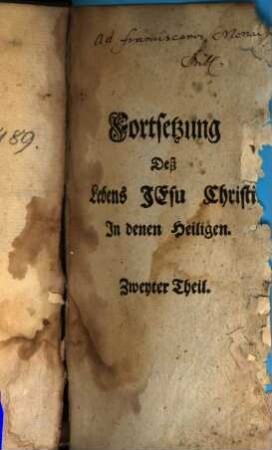 Ad franciscanos Monac
489.
Fortsetzung
Deß
Lebens JEsu Christi
In denen Heiligen.
Zweyter Theil.